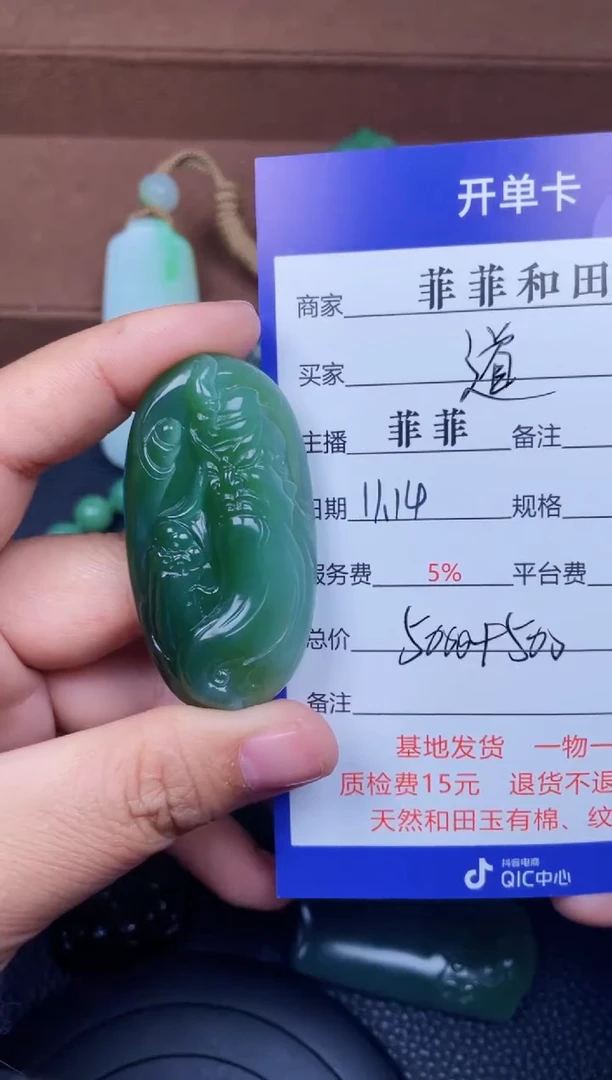 开单卡
商家 菲菲和田
买家 道
主播 菲菲 备注
日期 11.14 规格
服务费 5% 平台费
总价 5000+500
备注
基地发货 一物一
质检费15元 退货不退
天然和田玉有棉、纹
抖音电商
QIC中心